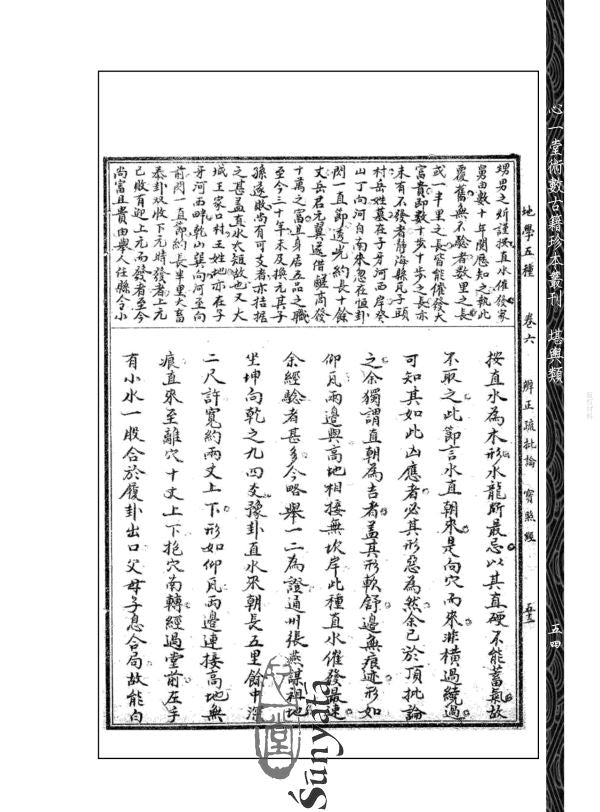 心一堂術數古籍珍本叢刊 堪輿類
五四
地學五種 卷六 辨正疏批論 寶照經 五十三
甥男之妍謹按直水催發家
舅由數十年閱歷知之執此
覆舊無不驗者數里之長
或一半里之長皆能催發大
富貴即數十步十步之長亦
未有不發者靜海縣瓦子頭
村岳姓墓在子牙河西岸癸
山丁向河自南來忽在恒卦
開一直節透光約長十餘
丈岳君元翼遂借鹺商發
十萬之富且身居五品之職
至今三十年未及換元其子
孫遂敗尚有可支者亦拮据
之甚蓋直水太短故也又大
城王家口村王姓地亦在子
牙河西畔乾山巽向河至向
前開一直節約長半里大畜
泰卦双收下元時發者上元
已敗有迎上元而發者至今
尚富且貴由舉人任縣令小
按直水為木形水龍所最忌以其直硬不能蓄氣故
不取之此節言水直朝來是向穴而來非橫過繞過
可知其如此凶應者必其形惡為然余已於頂批論
之余獨謂直朝為吉者蓋其形軟舒邊無痕迹形如
仰瓦兩邊與高地相接無坎岸此種直水催發最速
余經驗者甚多今略舉一二為證通州張燕謀祖地
坐坤向乾之九四爻豫卦直水來朝長五里餘中滔
二尺許寬約兩丈上下形如仰瓦兩邊連接高地無
痕直來至離穴十丈上下抱穴南轉經過堂前左手
有小水一股合於履卦出口父母子息合局故能白
心一堂
Śūnyatā